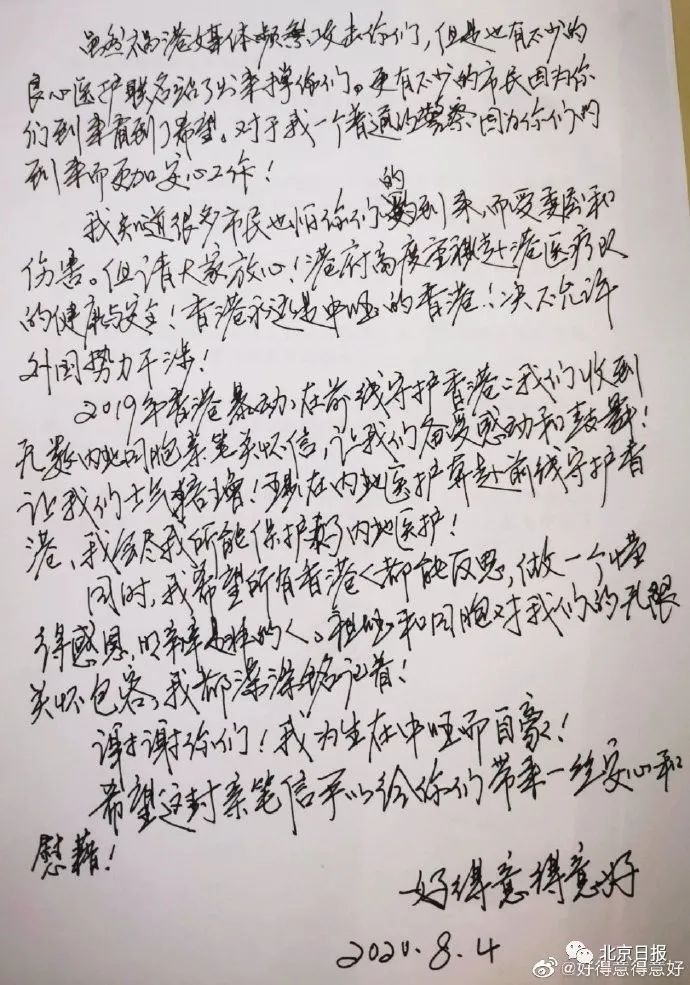 虽然祸港媒体频繁攻击你们，但是也有不少的
良心医护联名站了出来撑你们。更有不少的市民因为你
们到来看到了希望。对于我一个普通的警察因为你们的
到来而更加安心工作！
我知道很多市民也怕你们的到来，而受委屈和
伤害。但请大家放心！港府高度重视赴港医疗队
的健康与安全！香港永远是中国的香港！决不允许
外国势力干涉！
2019年香港暴动，在前线守护香港：我们收到
无数内地同胞亲笔关怀信，让我们备受感动和鼓舞！
让我们士气倍增！现在内地医护奔赴前线守护香
港，我会尽我所能保护内地医护！
同时，我希望所有香港人都能反思，做一个懂
得感恩，明辨是非的人。祖国和同胞对我们的无限
关怀包容，我都深深铭记着！
谢谢你们！我为生在中国而自豪！
希望这封亲笔信可以给你们带来一丝安心和
慰藉！
好得意得意好
2020.8.4
北京日报
@好得意得意好